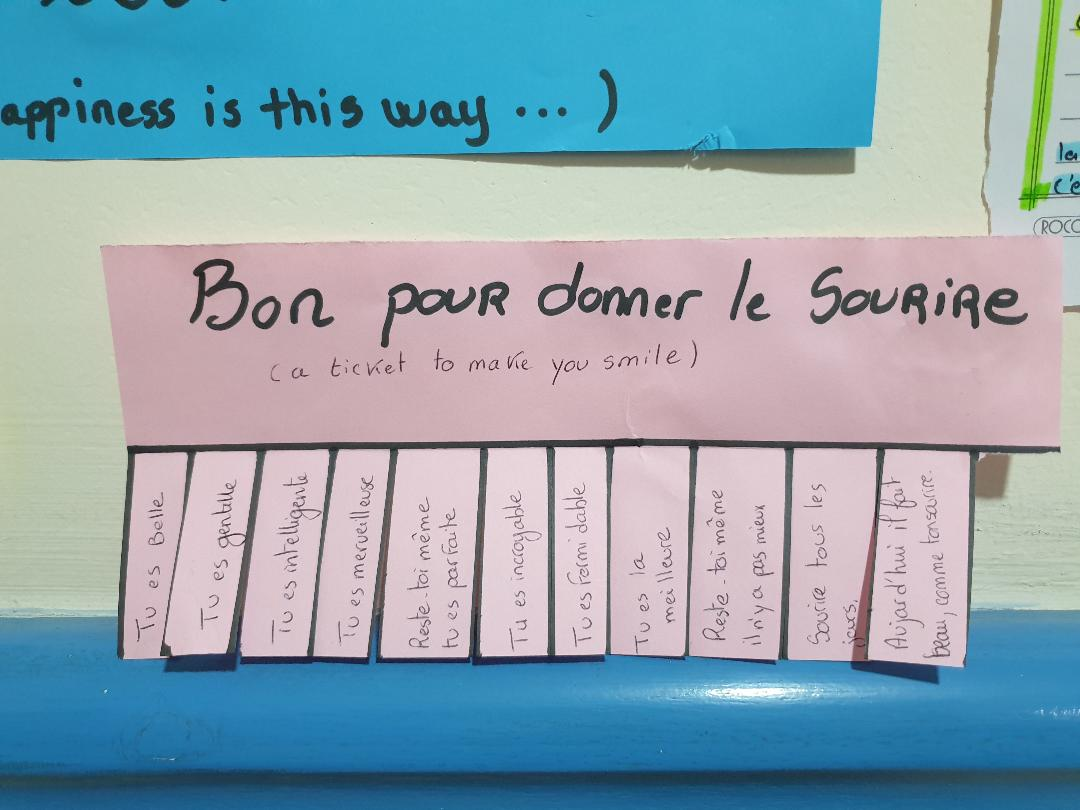 appiness is this way ... )
Bon pour donner le Sourire
(a ticket to make you smile)
Tu es Belle
Tu es gentille
Tu es intelligente
Tu es merveilleuse
Reste-toi même
tu es parfaite
Tu es incroyable
Tu es formidable
Tu es la
meilleure
Reste-toi même
il n'y a pas mieux
Sourire tous les
jours.
Aujord'hui il fait
beau, comme ton sourire.
la
c'e
ROCO